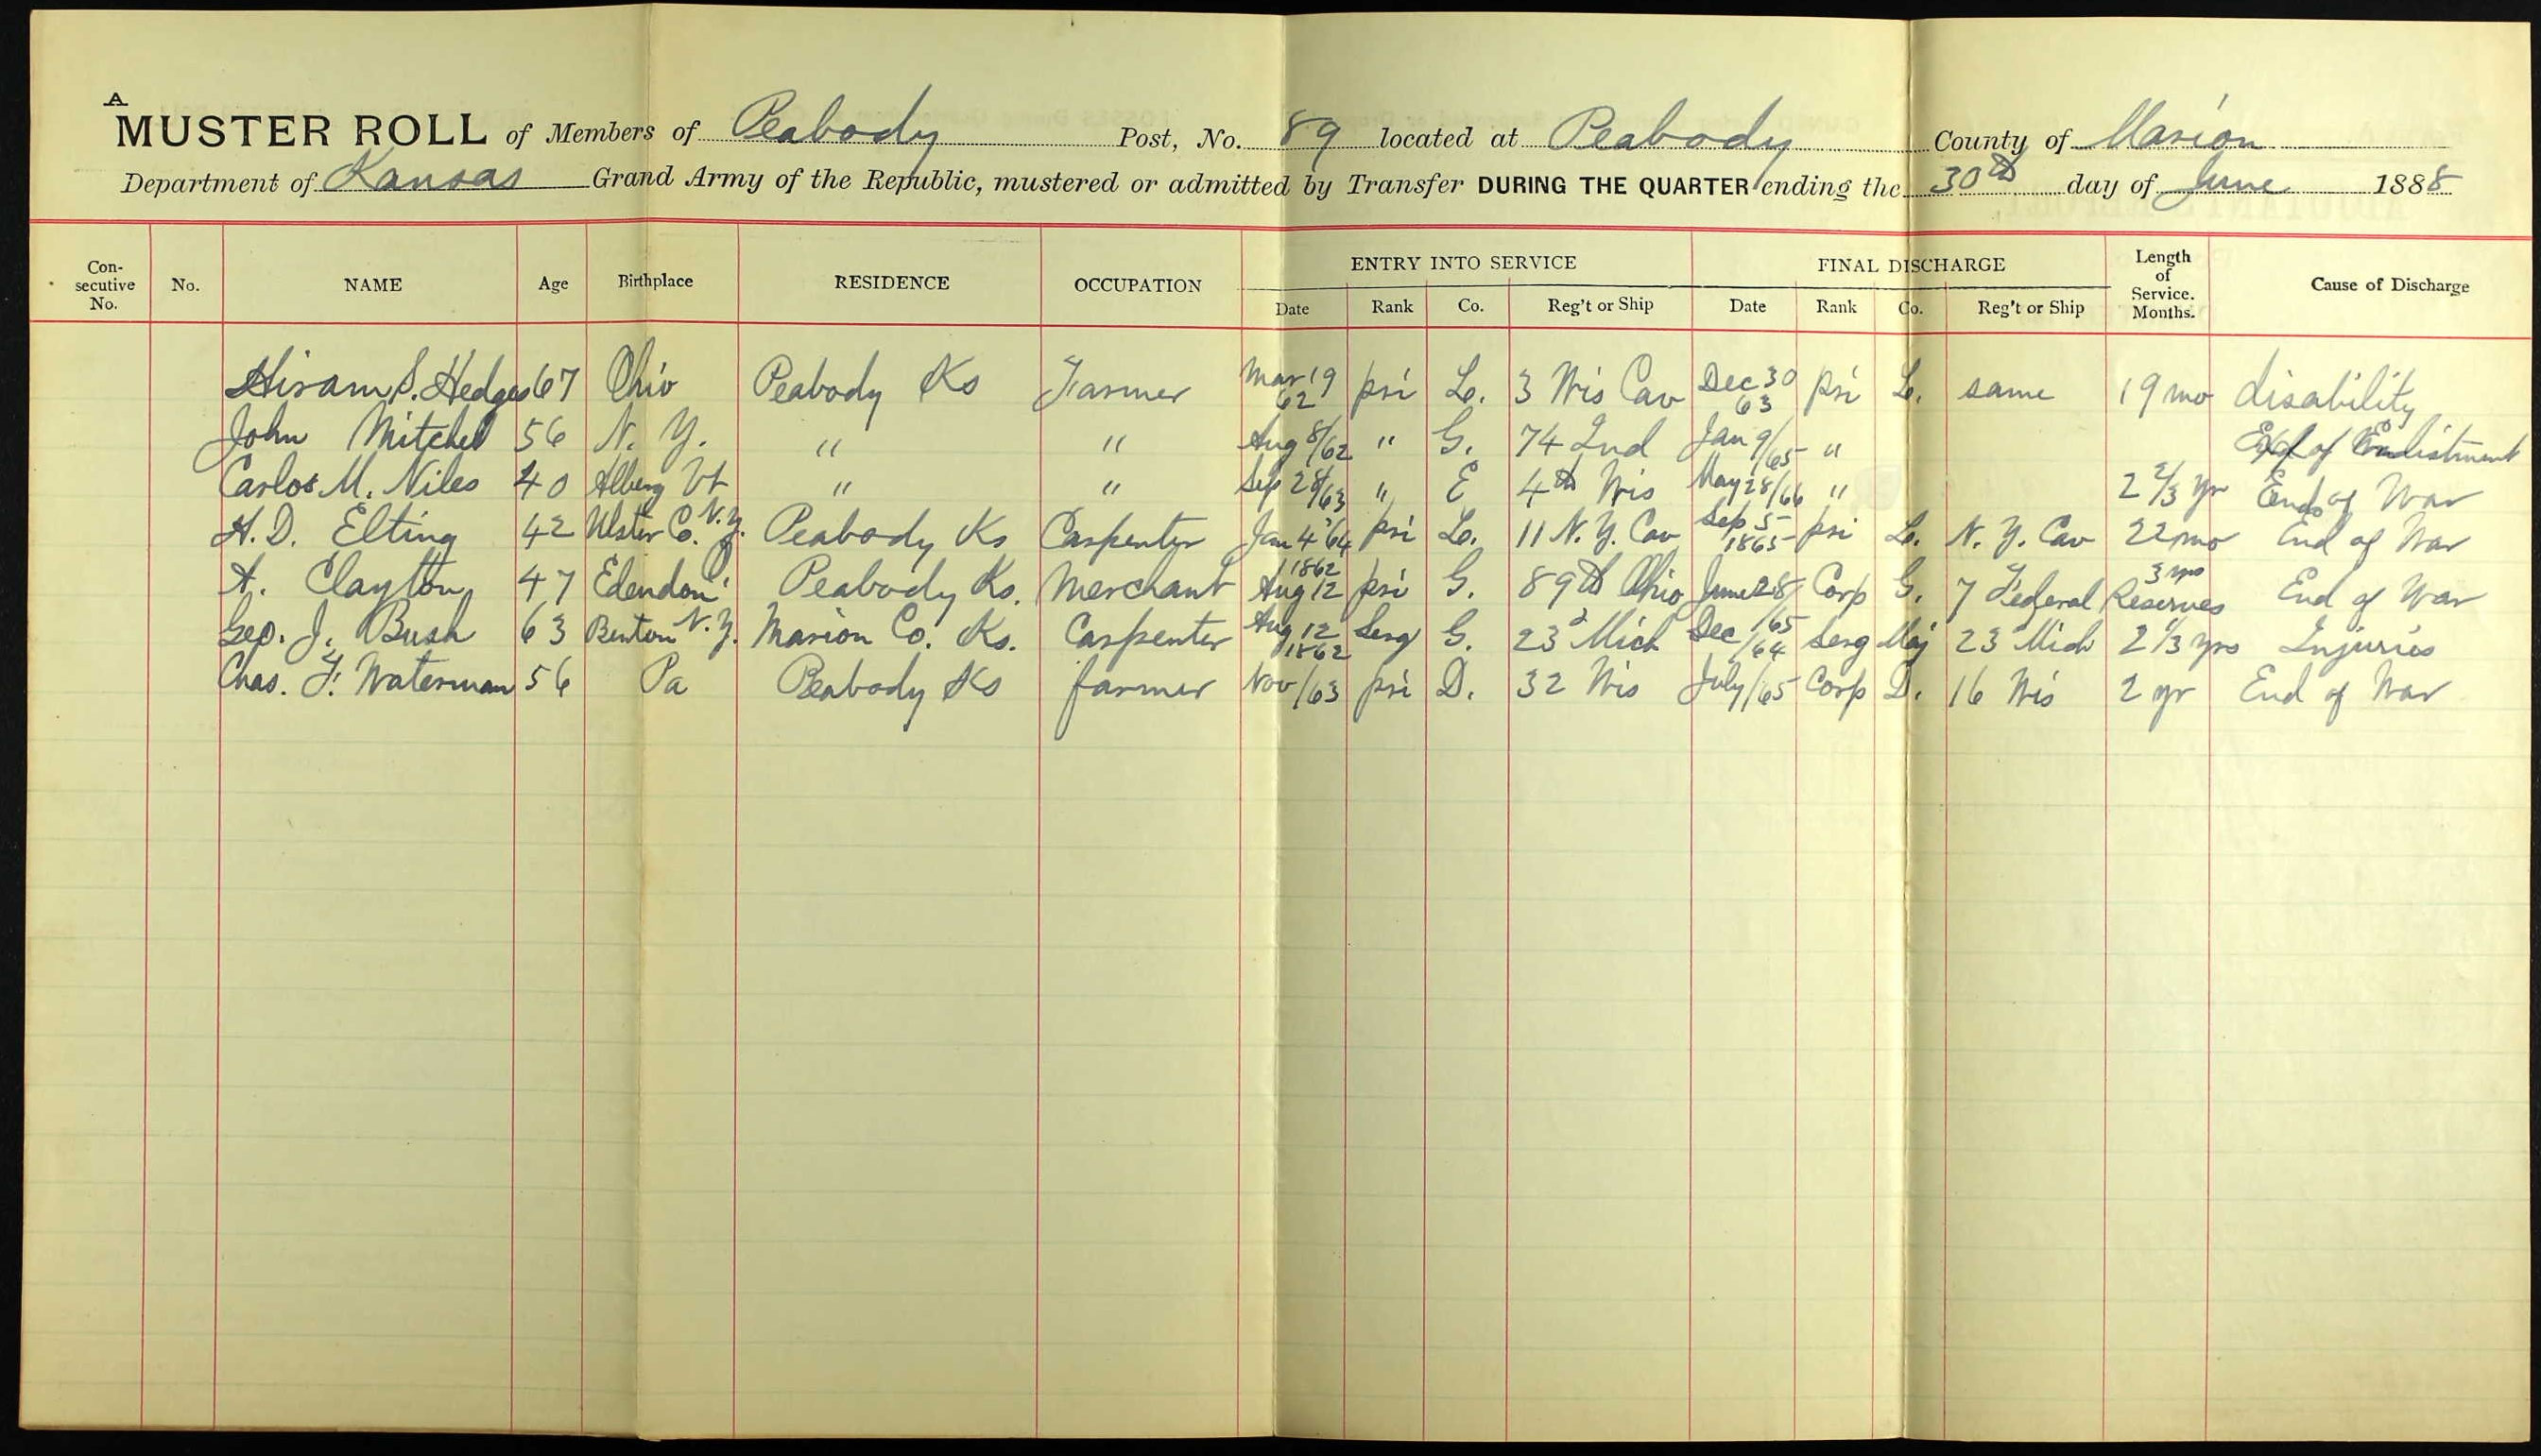 A
MUSTER ROLL of Members of Peabody Post, No. 89 located at Peabody County of Marion
Department of Kansas Grand Army of the Republic, mustered or admitted by Transfer DURING THE QUARTER ending the 30th day of June 1888
Con-secutive No. No. NAME Age Birthplace RESIDENCE OCCUPATION ENTRY INTO SERVICE FINAL DISCHARGE Length of Service. Months. Cause of Discharge
Date Rank Co. Reg't or Ship Date Rank Co. Reg't or Ship
Hiram S. Hedges 67 Ohio Peabody Ks Farmer Mar 19 62 pri L. 3 Wis Cav Dec 30 63 pri L. same 19 mo disability
John Mitchel 56 N. Y. " " Aug 8/62 " G. 74 Ind Jan 9/65 " Exp of Enlistment
Carlos M. Niles 40 Alberg Vt " " Sep 28/63 " E 4th Wis May 28/66 " 2 2/3 yr End of War
H. D. Elting 42 Ulster Co. N.Y. Peabody Ks Carpenter Jan 4 '64 pri L. 11 N. Y. Cav Sep 5 1865 pri L. N. Y. Cav 22 mo End of War
A. Clayton 47 Peabody Ks. Merchant 1862 Aug 12 pri G. 89th Ohio June 28/65 Corp G. 7 Federal Reserves 3 yrs End of War
Geo. J. Bush 63 Benton N.Y. Marion Co. Ks. Carpenter Aug 12 1862 Serg G. 23d Mich Dec /64 Serg Maj 23 Mich 2 1/3 yrs Injuries
Chas. F. Waterman 56 Pa Peabody Ks farmer Nov/63 pri D. 32 Wis July/65 Corp D. 16 Wis 2 yr End of War